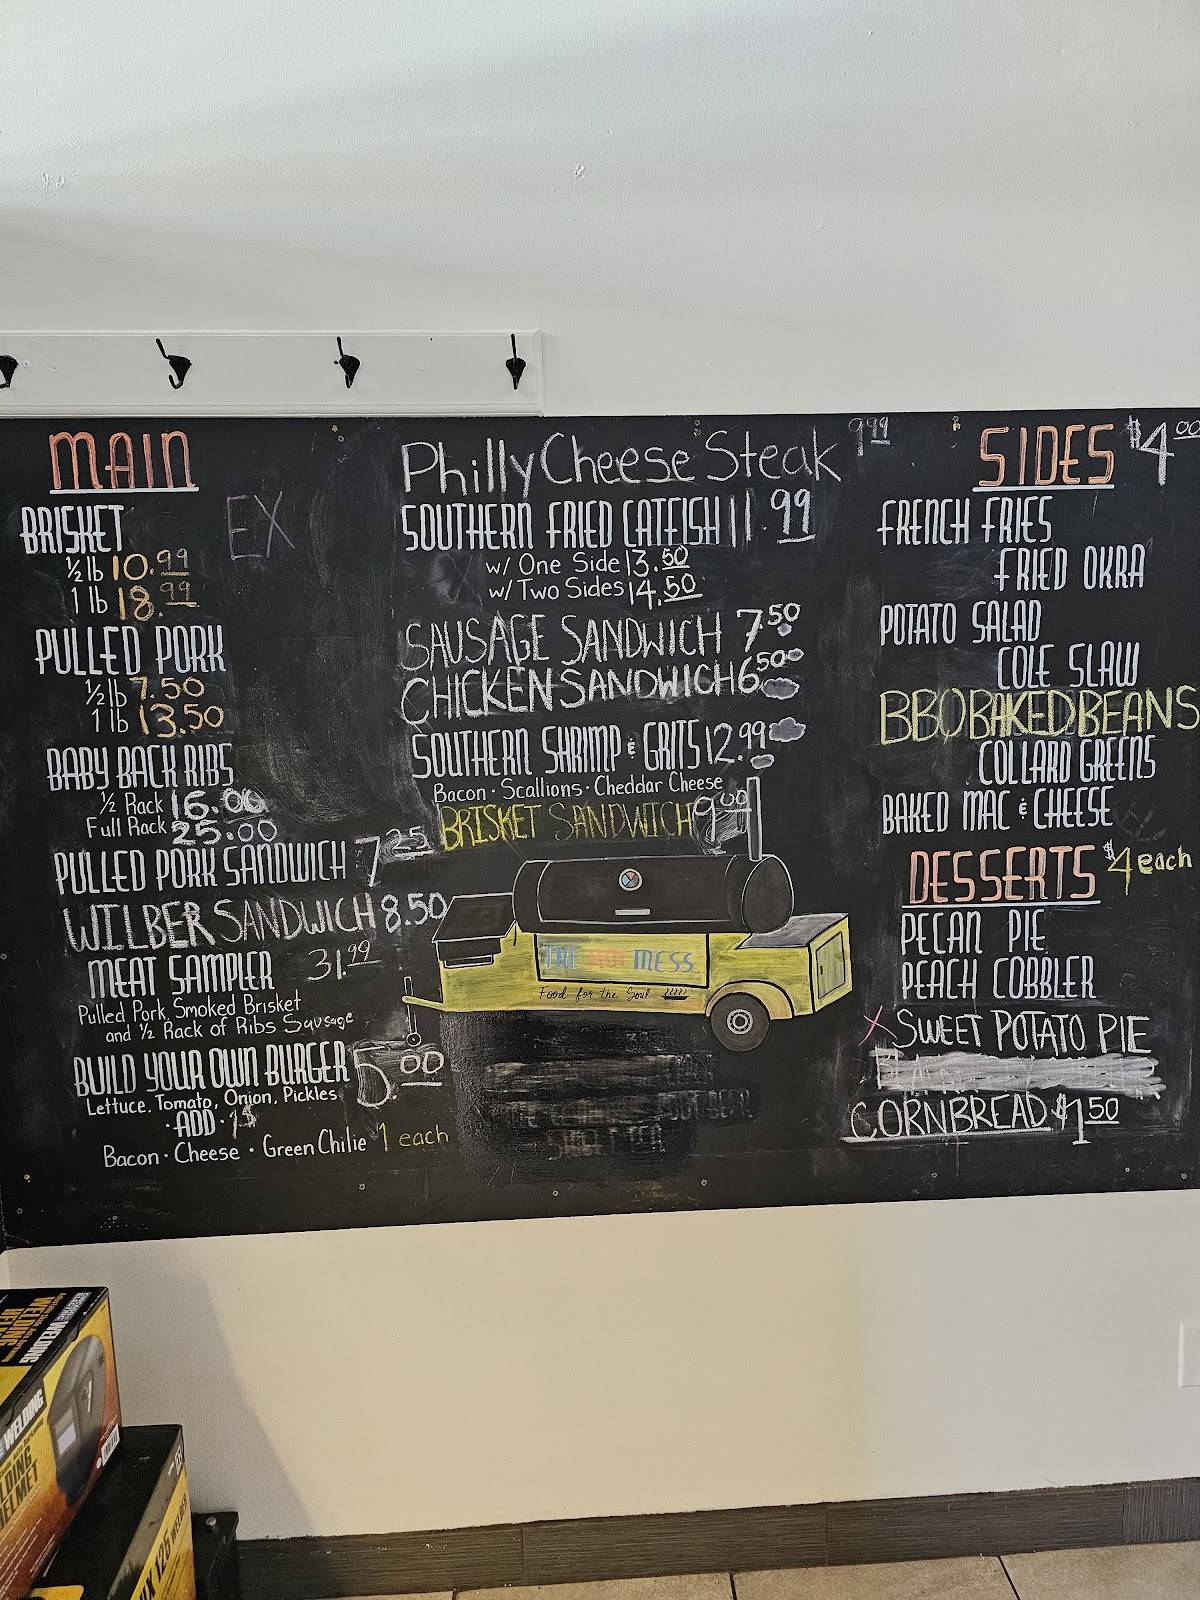 MAIN
EX
BRISKET
½ lb 10.99
1 lb 18.99
PULLED PORK
½ lb 7.50
1 lb 13.50
BABY BACK RIBS
½ Rack 16.00
Full Rack 25.00
PULLED PORK SANDWICH 7.25
WILBER SANDWICH 8.50
MEAT SAMPLER 31.99
Pulled Pork, Smoked Brisket
and ½ Rack of Ribs Sausage
BUILD YOUR OWN BURGER 5.00
Lettuce, Tomato, Onion, Pickles
· ADD · 1$
Bacon · Cheese · Green Chilie $1 each
Philly Cheese Steak 9.99
SOUTHERN FRIED CATFISH 11.99
w/ One Side 13.50
w/ Two Sides 14.50
SAUSAGE SANDWICH 7.50
CHICKEN SANDWICH 6.50
SOUTHERN SHRIMP & GRITS 12.99
Bacon · Scallions · Cheddar Cheese
BRISKET SANDWICH 9.00
THE HOT MESS
Food for the Soul
SIDES $4.00
FRENCH FRIES
FRIED OKRA
POTATO SALAD
COLE SLAW
BBQ BAKED BEANS
COLLARD GREENS
BAKED MAC & CHEESE
DESSERTS $4 each
PECAN PIE
PEACH COBBLER
X SWEET POTATO PIE
CORNBREAD $1.50
WELDING
WELDING
HELMET
125 WELDER